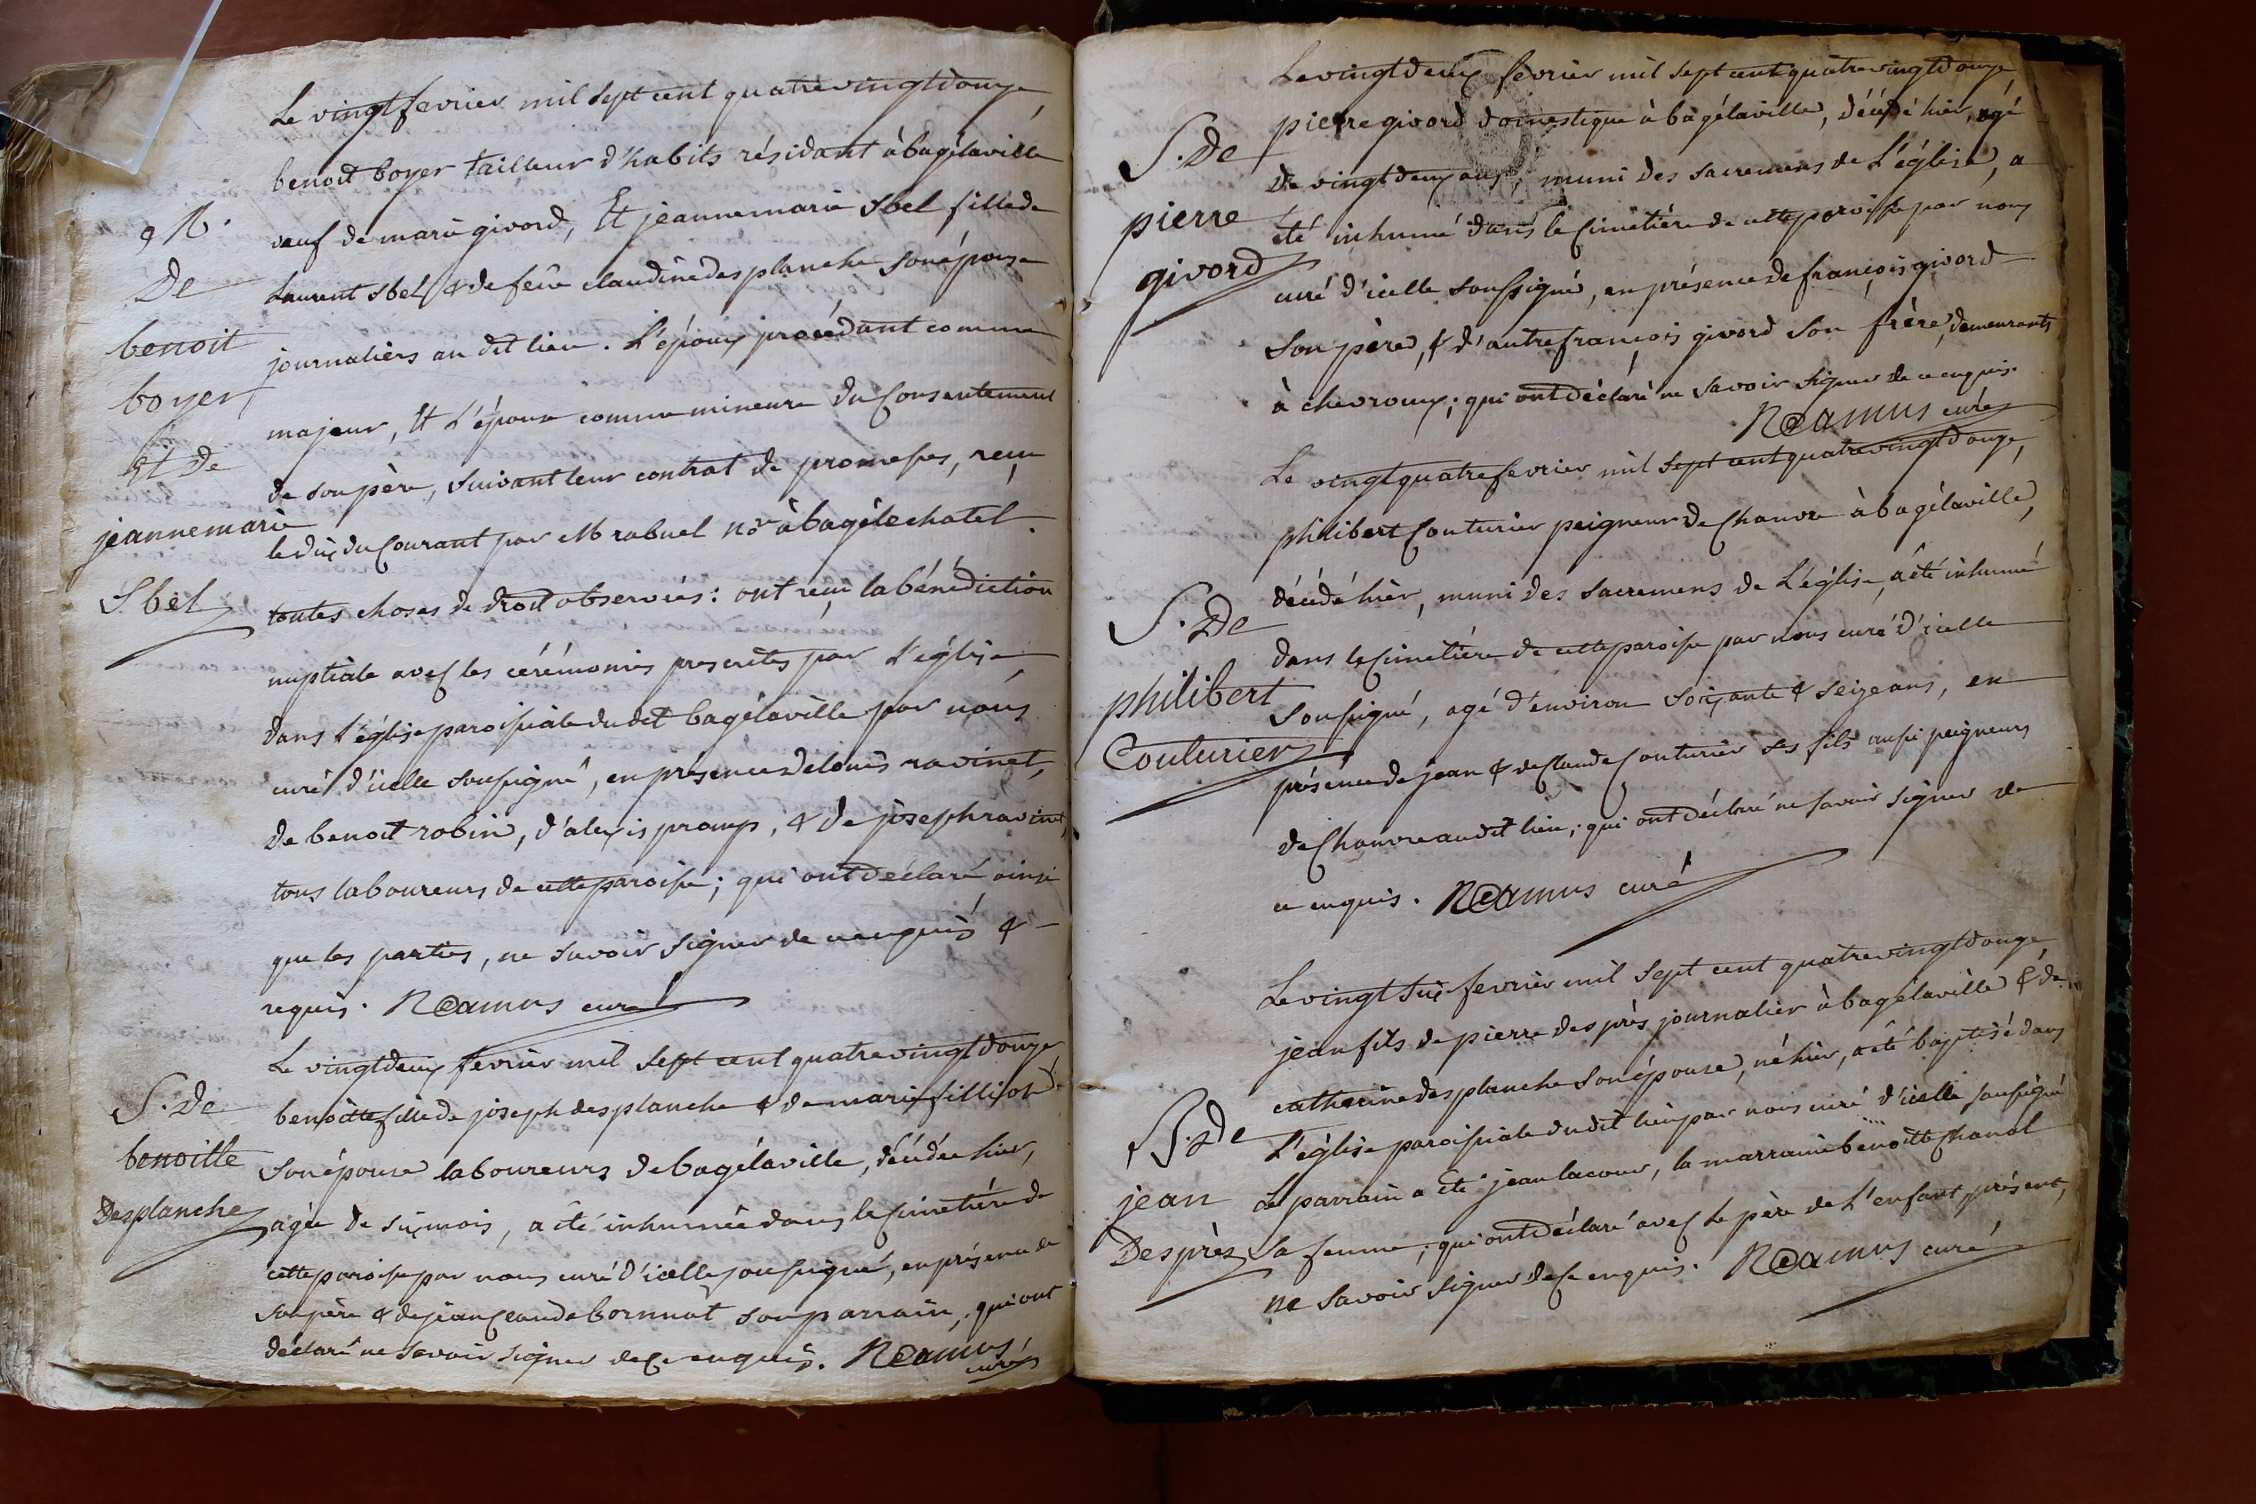 Le vingt fevrier mil sept cent quatrevingt douze
benoit boyer tailleur d'habits résidant à bagélaville
veuf de marie givord, Et jeannemarie Sbel fille de
Laurent Sbel & de feüe claudine desplanche son épouse
journaliers au dit lieu. L'époux procédant comme
majeur, Et L'épouse comme mineure du Consentement
de son père, suivant leur contrat de promesses, reçu
le dix du Courant par Me rabuel Nore à bagélechatel
toutes choses de droit observées : ont reçu la bénédiction
nuptiale avec les cérémonies prescrites par L'église
dans L'église paroissiale du dit bagélaville par nous
curé d'icelle soussigné, en présence de Louis ravinet,
de benoit robin, d'alexis promp, & de joseph ravinet,
tous laboureurs de cette paroisse ; qui ont déclaré ainsi
que les parties, ne savoir signer de ce enquis &
requis. Ramus curé
M.
De
benoit
boyer
Et De
jeannemarie
Sbel
Le vingtdeux fevrier mil sept cent quatrevingt douze
benoitte fille de joseph desplanche & de marie fillion
son épouse laboureurs de bagélaville, décédée hier,
agée de six mois, a été inhumée dans le Cimetière de
cette paroisse par nous curé d'icelle soussigné, en présence de
son père & de jean Claude bornuat son parrain, qui ont
déclaré ne savoir signer de Ce enquis. Ramus
curé
S. De
benoitte
Desplanche
Le vingtdeux fevrier mil sept cent quatrevingt douze
pierre givord domestique à bagélaville, décédé hier, agé
de vingtdeux ans, muni des sacremens de L'église, a
été inhumé dans le Cimetière de cette paroisse par nous
curé d'icelle soussigné, en présence de françois givord
son père, & d'autre françois givord son frère, demeurants
à chevroux ; qui ont déclaré ne savoir signer de ce enquis.
Ramus curé
S. De
pierre
givord
Le vingtquatre fevrier mil sept cent quatrevingt douze,
philibert Couturier peigneur de Chanvre à bagélaville,
décédé hier, muni des sacremens de L'église, a été inhumé
dans le Cimetière de cette paroisse par nous curé d'icelle
soussigné, agé d'environ soixante & seize ans, en
présence de jean & de Claude Couturier ses fils aussi peigneurs
de Chanvre au dit lieu ; qui ont déclaré ne savoir signer de
ce enquis. Ramus curé
S. De
philibert
Couturier
Le vingt six fevrier mil sept cent quatrevingt douze
jean fils de pierre desprès journalier à bagélaville & de
catherine desplanche son épouse, né hier, a été baptisé dans
L'église paroissiale du dit lieu par nous curé d'icelle soussigné
Le parrain a été jean lacour, la marraine benoitte Chanel
sa femme ; qui ont déclaré avec le père de L'enfant présent,
ne savoir signer de Ce enquis. Ramus curé
De
jean
Desprès